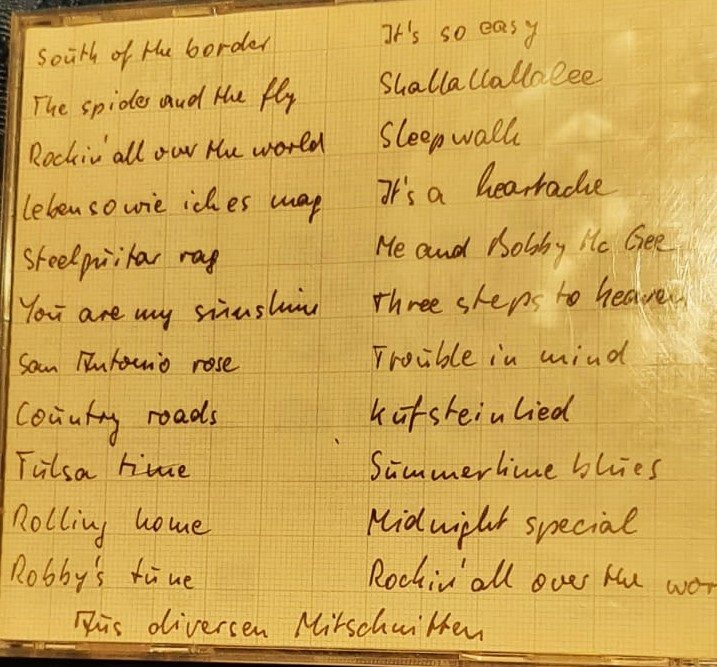 South of the border
The spider and the fly
Rockin' all over the world
Leben so wie ich es mag
Steelguitar rag
You are my sunshine
San Antonio rose
Country roads
Tulsa time
Rolling home
Robby's tune
It's so easy
Shallallallalee
Sleepwalk
It's a heartache
Me and Bobby Mc Gee
Three steps to heaven
Trouble in mind
Kufsteinlied
Summertime blues
Midnight special
Rockin' all over the wor
Aus diversen Mitschnitten